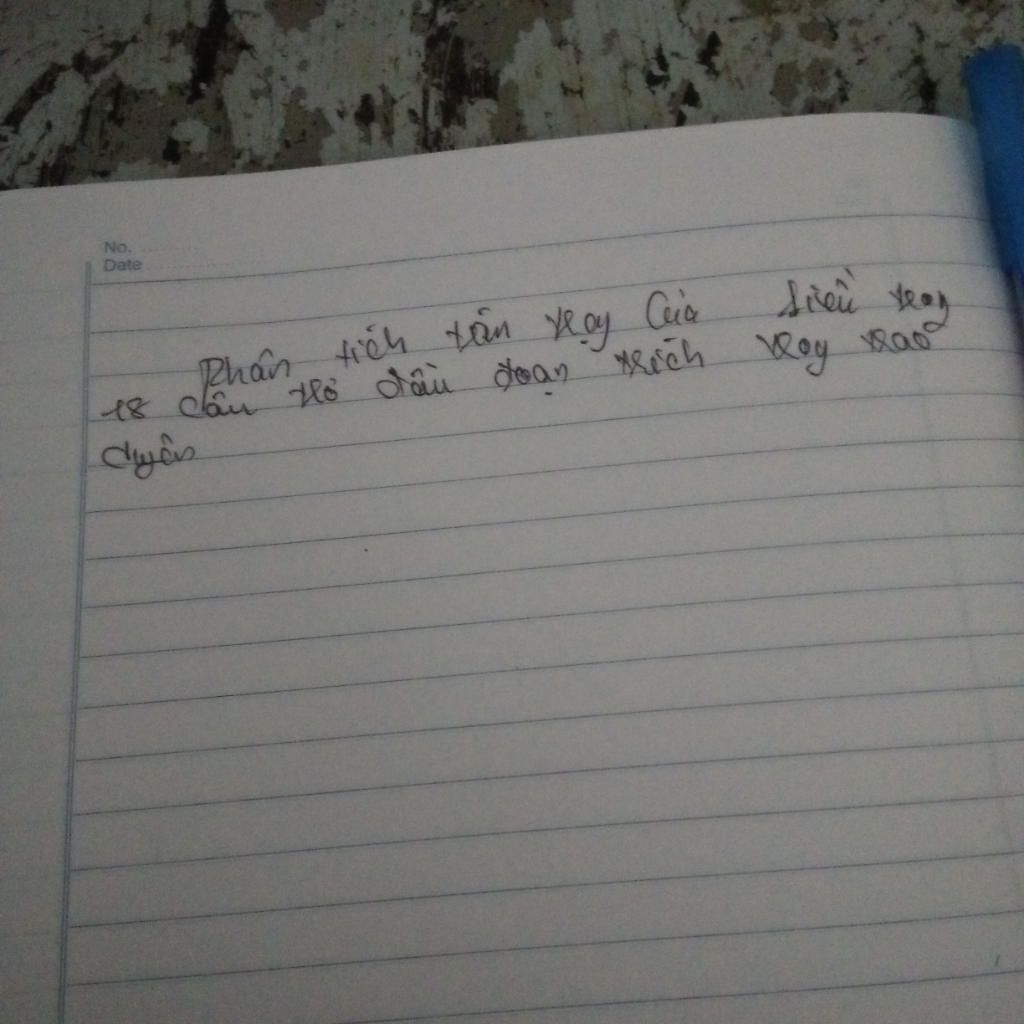 No.
Date
Phân tích tâm trạng của kiều trong
18 câu thơ đầu đoạn trích trong trao
duyên